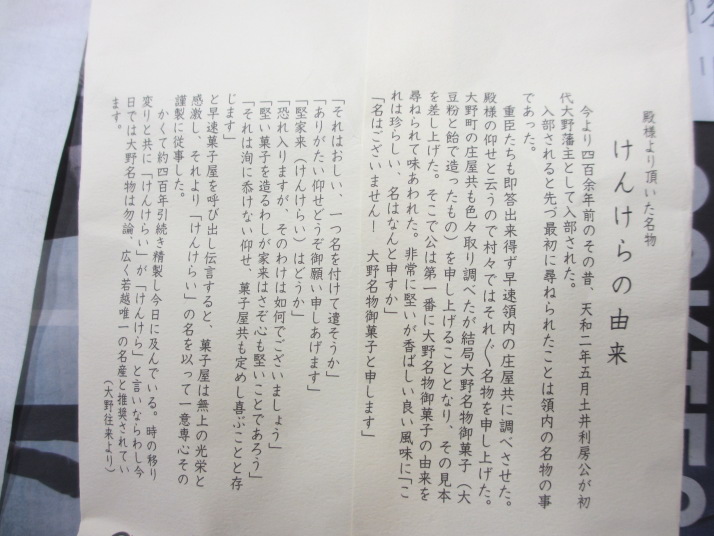 殿様より頂いた名物
けんけらの由来
今より四百余年前のその昔、天和二年五月土井利房公が初
代大野藩主として入部された。
入部されると先づ最初に尋ねられたことは領内の名物の事
であった。
重臣たちも即答出来得ず早速領内の庄屋共に調べさせた。
殿様の仰せと云うので村々ではそれ〴〵名物を申し上げた。
大野町の庄屋共も色々取り調べたが結局大野名物御菓子（大
豆粉と飴で造ったもの）を申し上げることとなり、その見本
を差し上げた。そこで公は第一番に大野名物御菓子の由来を
尋ねられて味あわれた。非常に堅いが香ばしい良い風味に「こ
れは珍らしい、名はなんと申すか」
「名はございません！　大野名物御菓子と申します」
「それはおしい、一つ名を付けて遣そうか」
「ありがたい仰せどうぞ御願い申しあげます」
「堅家来（けんけらい）はどうか」
「恐れ入りますが、そのわけは如何でございましょう」
「堅い菓子を造るわしが家来はさぞ心も堅いことであろう」
「それは洵に忝けない仰せ、菓子屋共も定めし喜ぶことと存
じます」
と早速菓子屋を呼び出し伝言すると、菓子屋は無上の光栄と
感激し、それより「けんけらい」の名を以って一意専心その
謹製に従事した。
かくて約四百年引続き精製し今日に及んでいる。時の移り
変りと共に「けんけらい」が「けんけら」と言いならわし今
日では大野名物は勿論、広く若越唯一の名産と推奨されてい
ます。
（大野往来より）